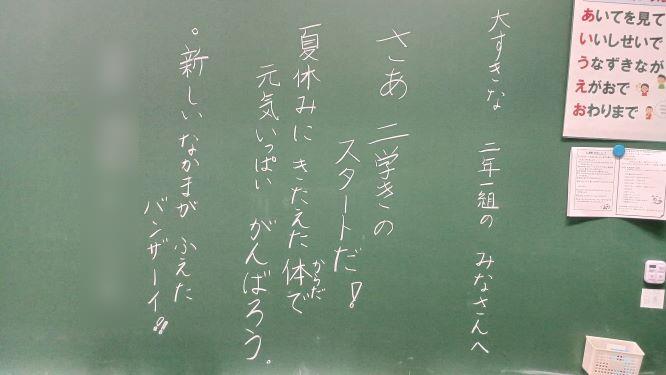 大すきな 二年一組の みなさんへ
さあ 二学きの
スタートだ!
夏休みに きたえた体で
からだ
元気いっぱい がんばろう。
。新しいなかまが ふえた
バンザーイ!!
あいてを見て
いいしせいで
うなずきなが
えがおで
おわりまで